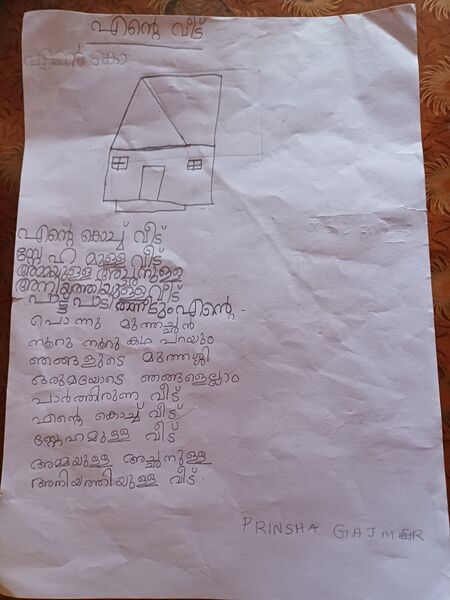 എന്റെ വീട്
എന്റെ കൊ
എന്റെ കൊച്ച് വീട്
സ്നേഹ മുള്ള വീട്
അമ്മയുള്ള അച്ഛനുള്ള
അനിയത്തിയുള്ള വീട്
പാട്ട് പാടി തന്നീടും എന്റെ
പൊന്നു മുത്തച്ഛൻ
നൂറു നൂറു കഥ പറയും
ഞങ്ങളുടെ മുത്തശ്ശി
ഒരുമയോടെ ഞങ്ങളെല്ലാം
പാർത്തിരുന്ന വീട്
എന്റെ കൊച്ച് വീട്
സ്നേഹമുള്ള വീട്
അമ്മയുള്ള അച്ഛനുള്ള
അനിയത്തിയുള്ള വീട്.
PRINSHA GAJMER